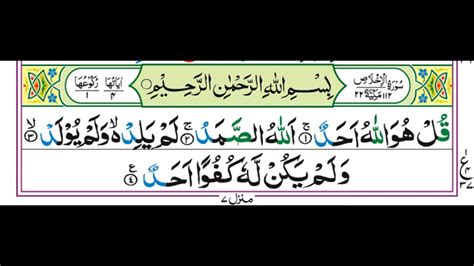 سُوْرَةُ الْاِخْلَاصِ ١١٢ مَكِّيَّةٌ ٢٢
بِسْمِ اللّٰهِ الرَّحْمٰنِ الرَّحِيْمِ
اٰيَاتُهَا ٤
رُكُوْعُهَا ١
قُلْ هُوَ اللّٰهُ اَحَدٌ ۚ ١ اَللّٰهُ الصَّمَدُ ۚ ٢ لَمْ يَلِدْ ۙ وَلَمْ يُوْلَدْ ۙ ٣
وَلَمْ يَكُنْ لَّهٗ كُفُوًا اَحَدٌ ٤ ع
ع ٤ ٣٧
منزل ٧